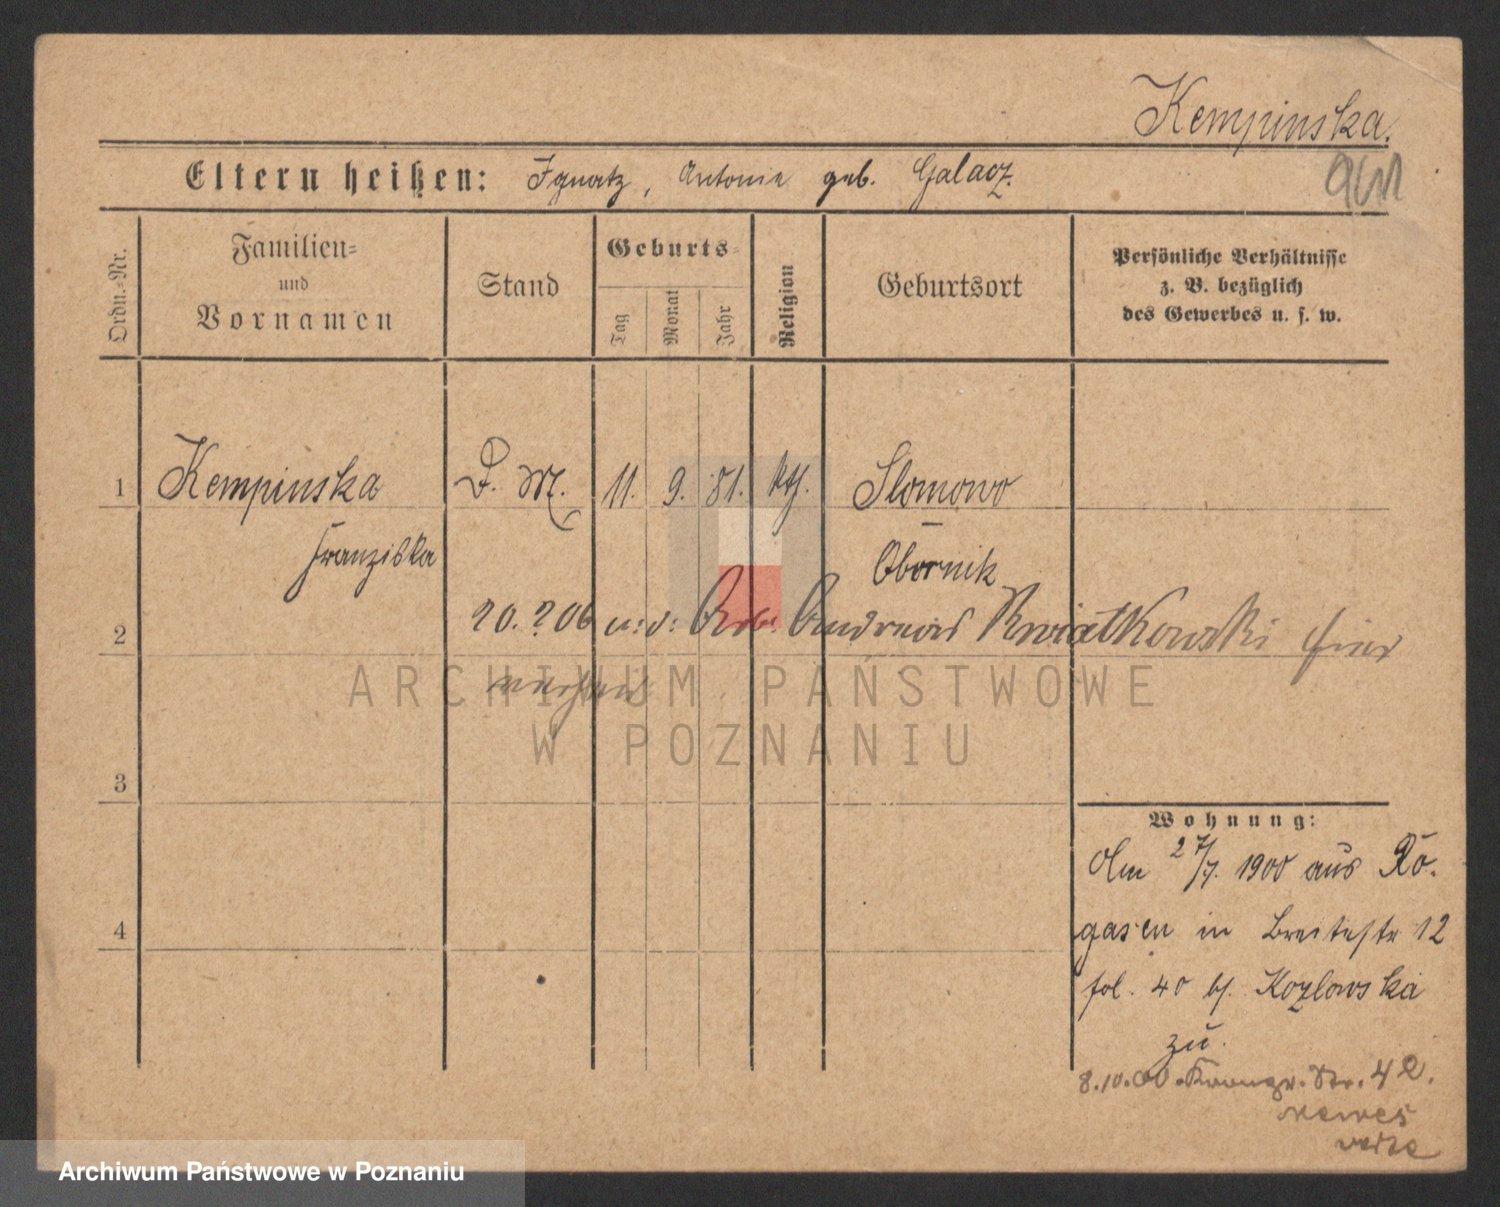 Kempinska.
Eltern heißen: Ignatz, Antonie geb. Galacz.
Ordn.=Nr.
Familien=
und
Vornamen
Stand
Geburts=
Tag
Monat
Jahr
Religion
Geburtsort
Persönliche Verhältnisse
z. B. bezüglich
des Gewerbes u. s. w.
1 Kempinska D. M. 11. 9. 81. kth. Slomowo
Franziska Obornik
2 20. 06 Arb. Andreas Kwiatkowski hier
ARCHIWUM PAŃSTWOWE
W POZNANIU
3
Wohnung:
Am 27/7. 1900 aus Ro-
4
gasen in Breitestr 12
fol. 40 bj. Kozlowska
zu.
8.10.00. Str. 42.
Archiwum Państwowe w Poznaniu